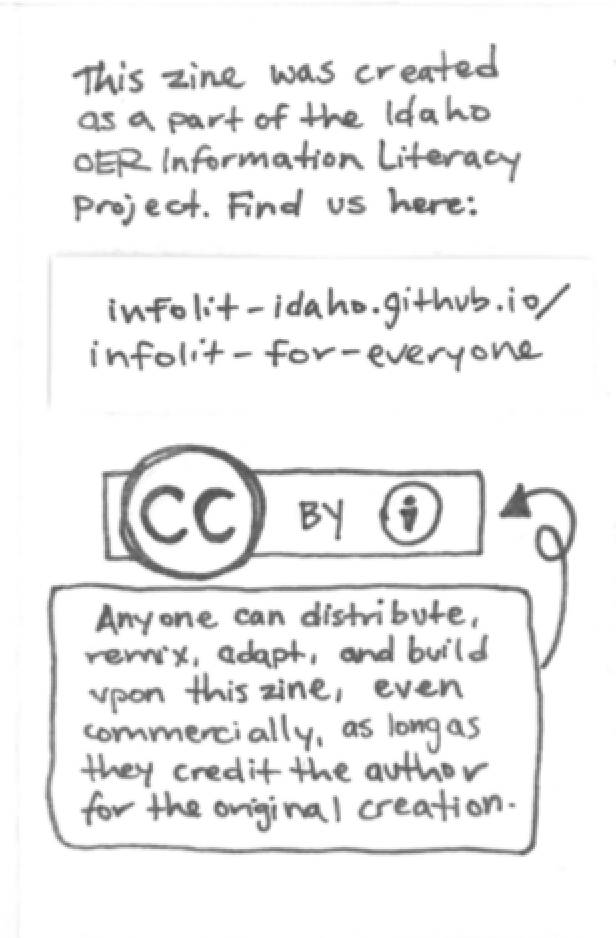 This zine was created
as a part of the Idaho
OER Information Literacy
Project. Find us here:
infolit-idaho.github.io/
infolit-for-everyone
CC BY
Anyone can distribute,
remix, adapt, and build
upon this zine, even
commercially, as long as
they credit the author
for the original creation.